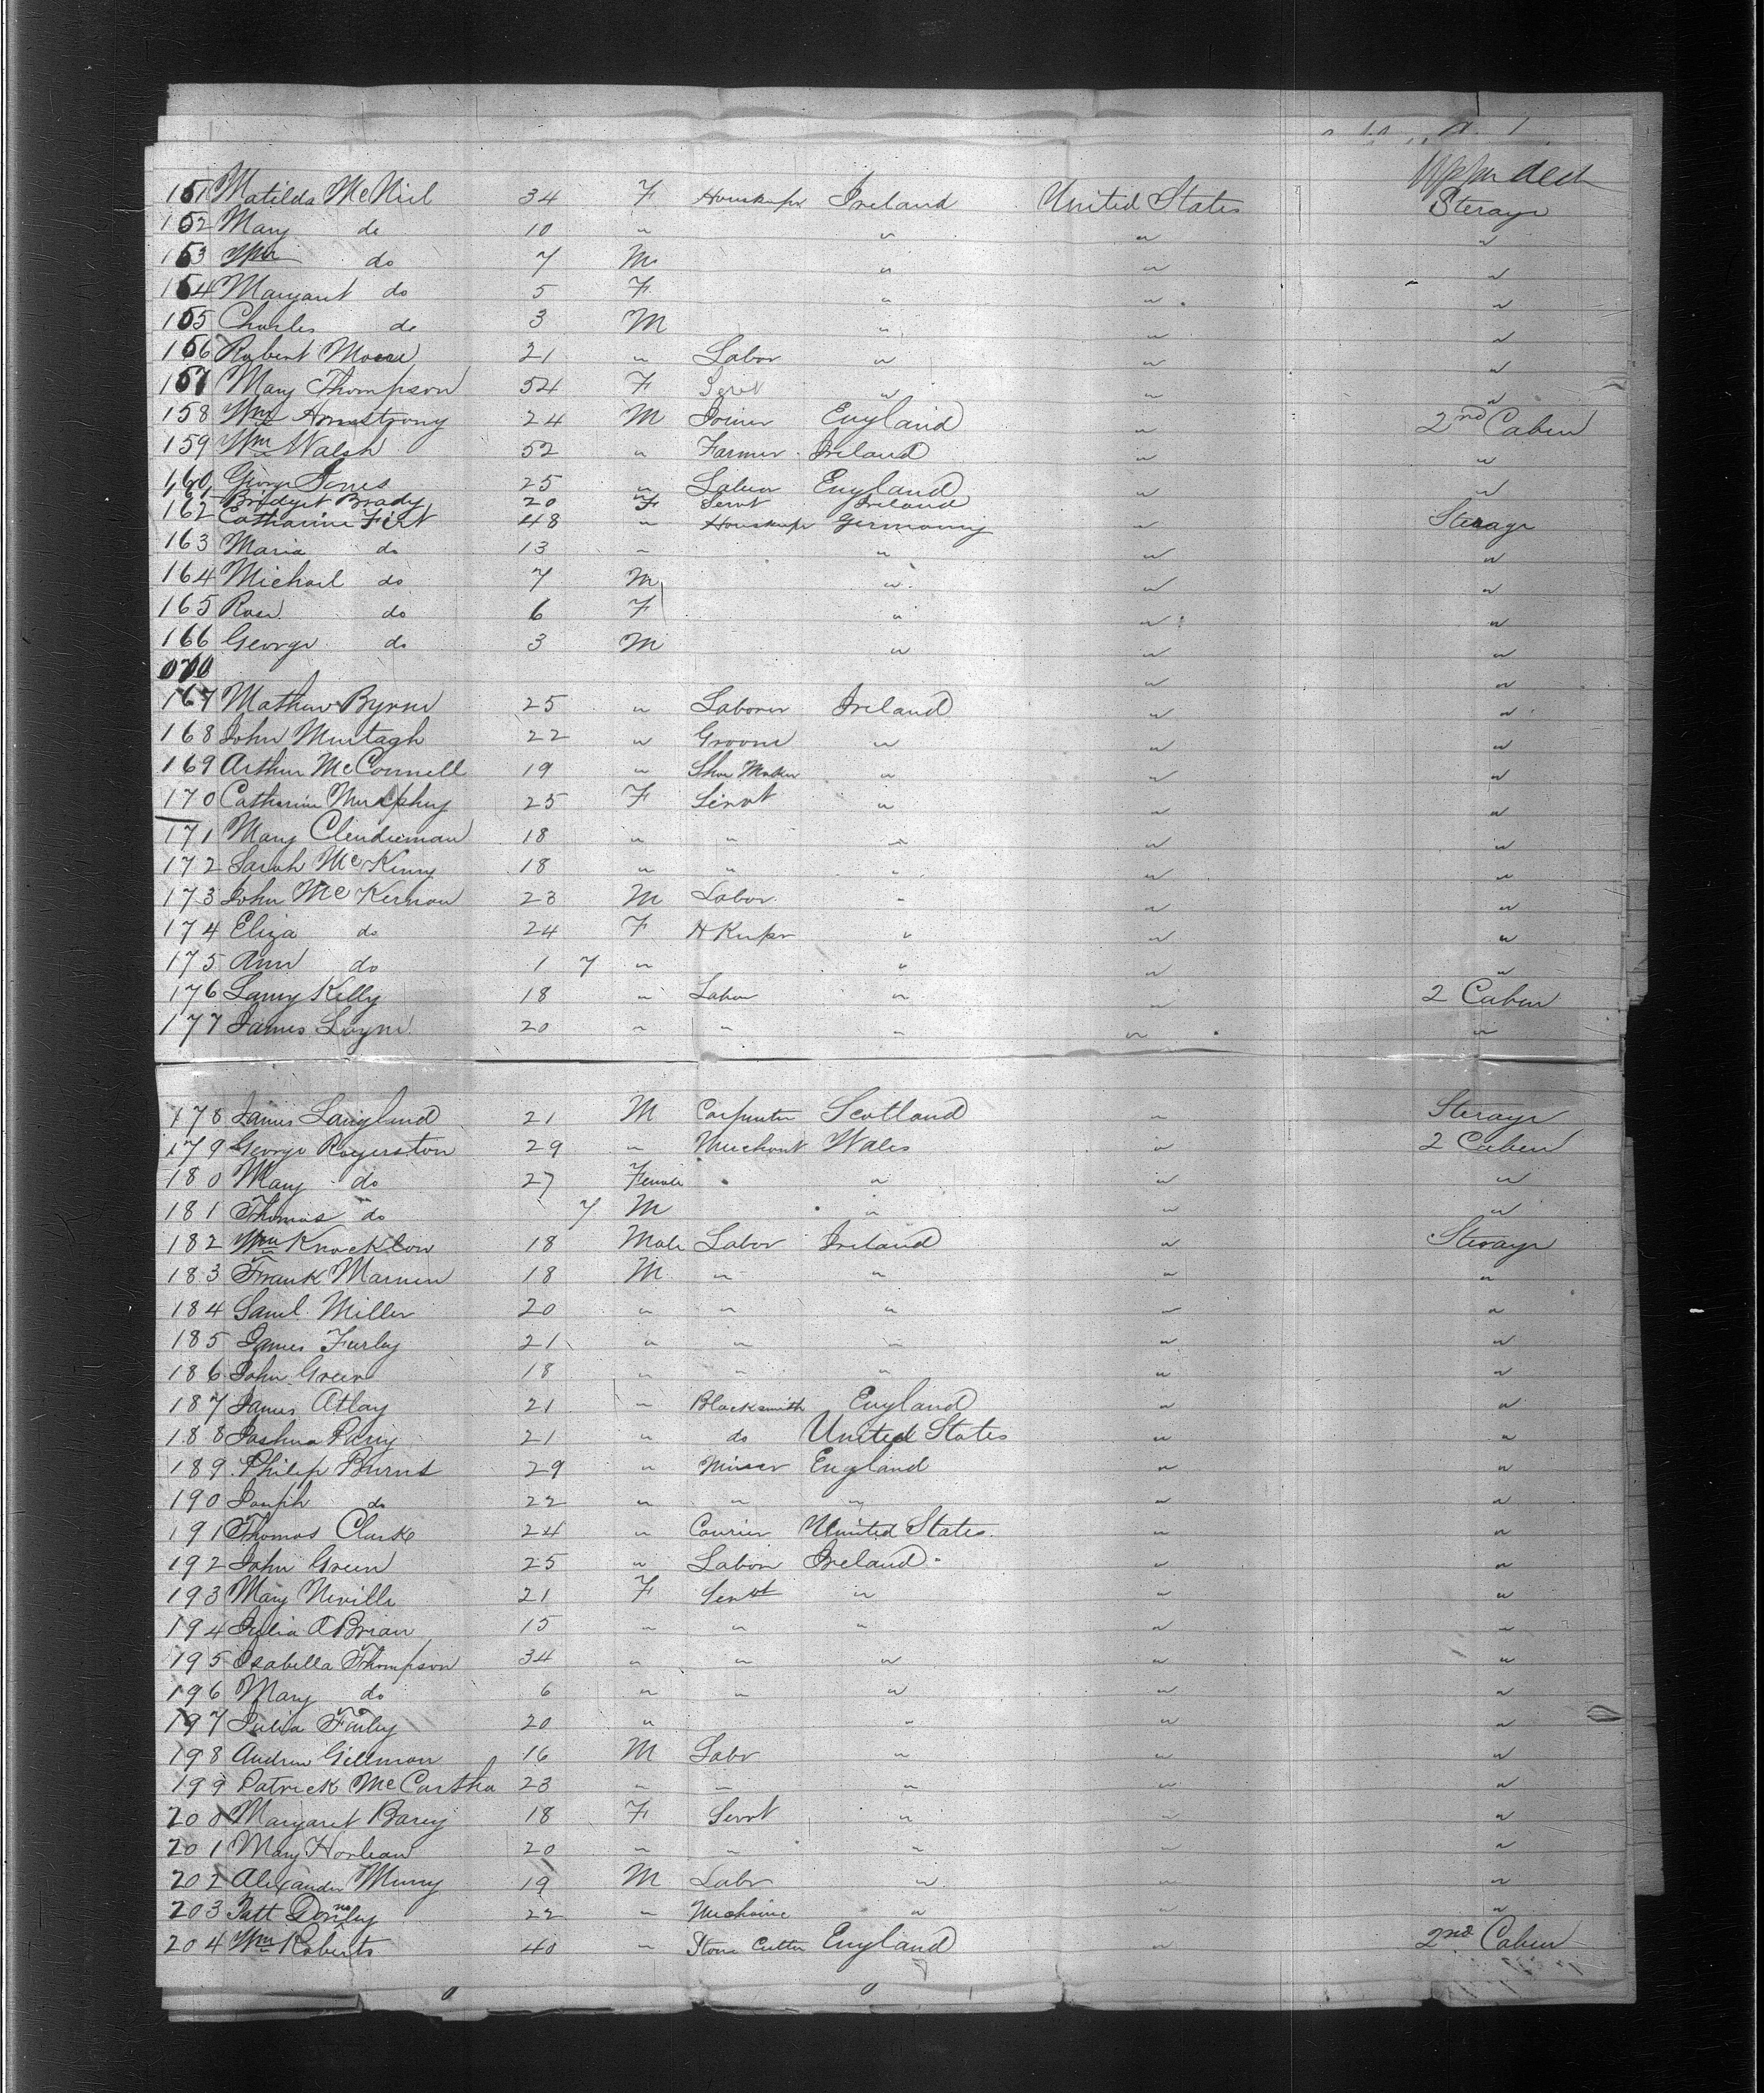 Upper deck
151 Matilda McNeil 34 F Houskeeper Ireland United States Sterage
152 Mary do 10 " " " "
153 Wm do 7 M " " "
154 Margaret do 5 F " " "
155 Charles do 3 M " " "
156 Robert Moore 21 " Labor " " "
157 Mary Thompson 54 F Servt " " "
158 Wm Armstrong 24 M Joiner England " 2nd Cabin
159 Wm Walsh 52 " Farmer Ireland " "
160 George Jones 25 " Labor England " "
161 Bridget Brady 20 F Servt Ireland
162 Catharine Fist 48 " Houskeeper Germany " Sterage
163 Maria do 13 " " " "
164 Michael do 7 M " " "
165 Rose do 6 F " " "
166 George do 3 M " " "
" "
167 Mathew Byrne 25 " Laborer Ireland " "
168 John Murtagh 22 " Groom " " "
169 Arthur McConnell 19 " Shoe Maker " " "
170 Catharine Murphy 25 F Servt " " "
171 Mary Clendieman 18 " " " " "
172 Sarah McKinny 18 " " " " "
173 John McKernon 23 M Labor " " "
174 Eliza do 24 F H Keeper " " "
175 Ann do 1 7 " " " "
176 Larry Kelly 18 " Labor " " 2 Cabin
177 James Loyne 20 " " " " "
178 James Langland 21 M Carpenter Scotland " Sterage
179 George Rogerston 29 " Merchant Wales " 2 Cabin
180 Mary do 27 Female " " "
181 Thomas do 7 M " " "
182 Wm Knockton 18 Male Labor Ireland " Sterage
183 Frank Marnen 18 M " " " "
184 Saml Miller 20 " " " " "
185 James Furley 21 " " " " "
186 John Green 18 " " " " "
187 James Atlay 21 " Blacksmith England " "
188 Joshua Parry 21 " do United States " "
189 Philip Burns 29 " Miner England " "
190 Joseph do 22 " " " " "
191 Thomas Clarke 24 " Courier United States " "
192 John Green 25 " Labor Ireland " "
193 Mary Neville 21 F Servt " " "
194 Julia O Brian 15 " " " " "
195 Isabella Thompson 34 " " " " "
196 Mary do 6 " " " " "
197 Julia Farley 20 " " " "
198 Andrew Gillman 16 M Labr " " "
199 Patrick McCartha 23 " " " " "
200 Margaret Barey 18 F Servt " " "
201 Mary Horlean 20 " " " " "
202 Alexander Murry 19 M Labr " " "
203 Patt Donnley 22 " Mechanic " " "
204 Wm Roberts 40 " Stone Cutter England " 2nd Cabin